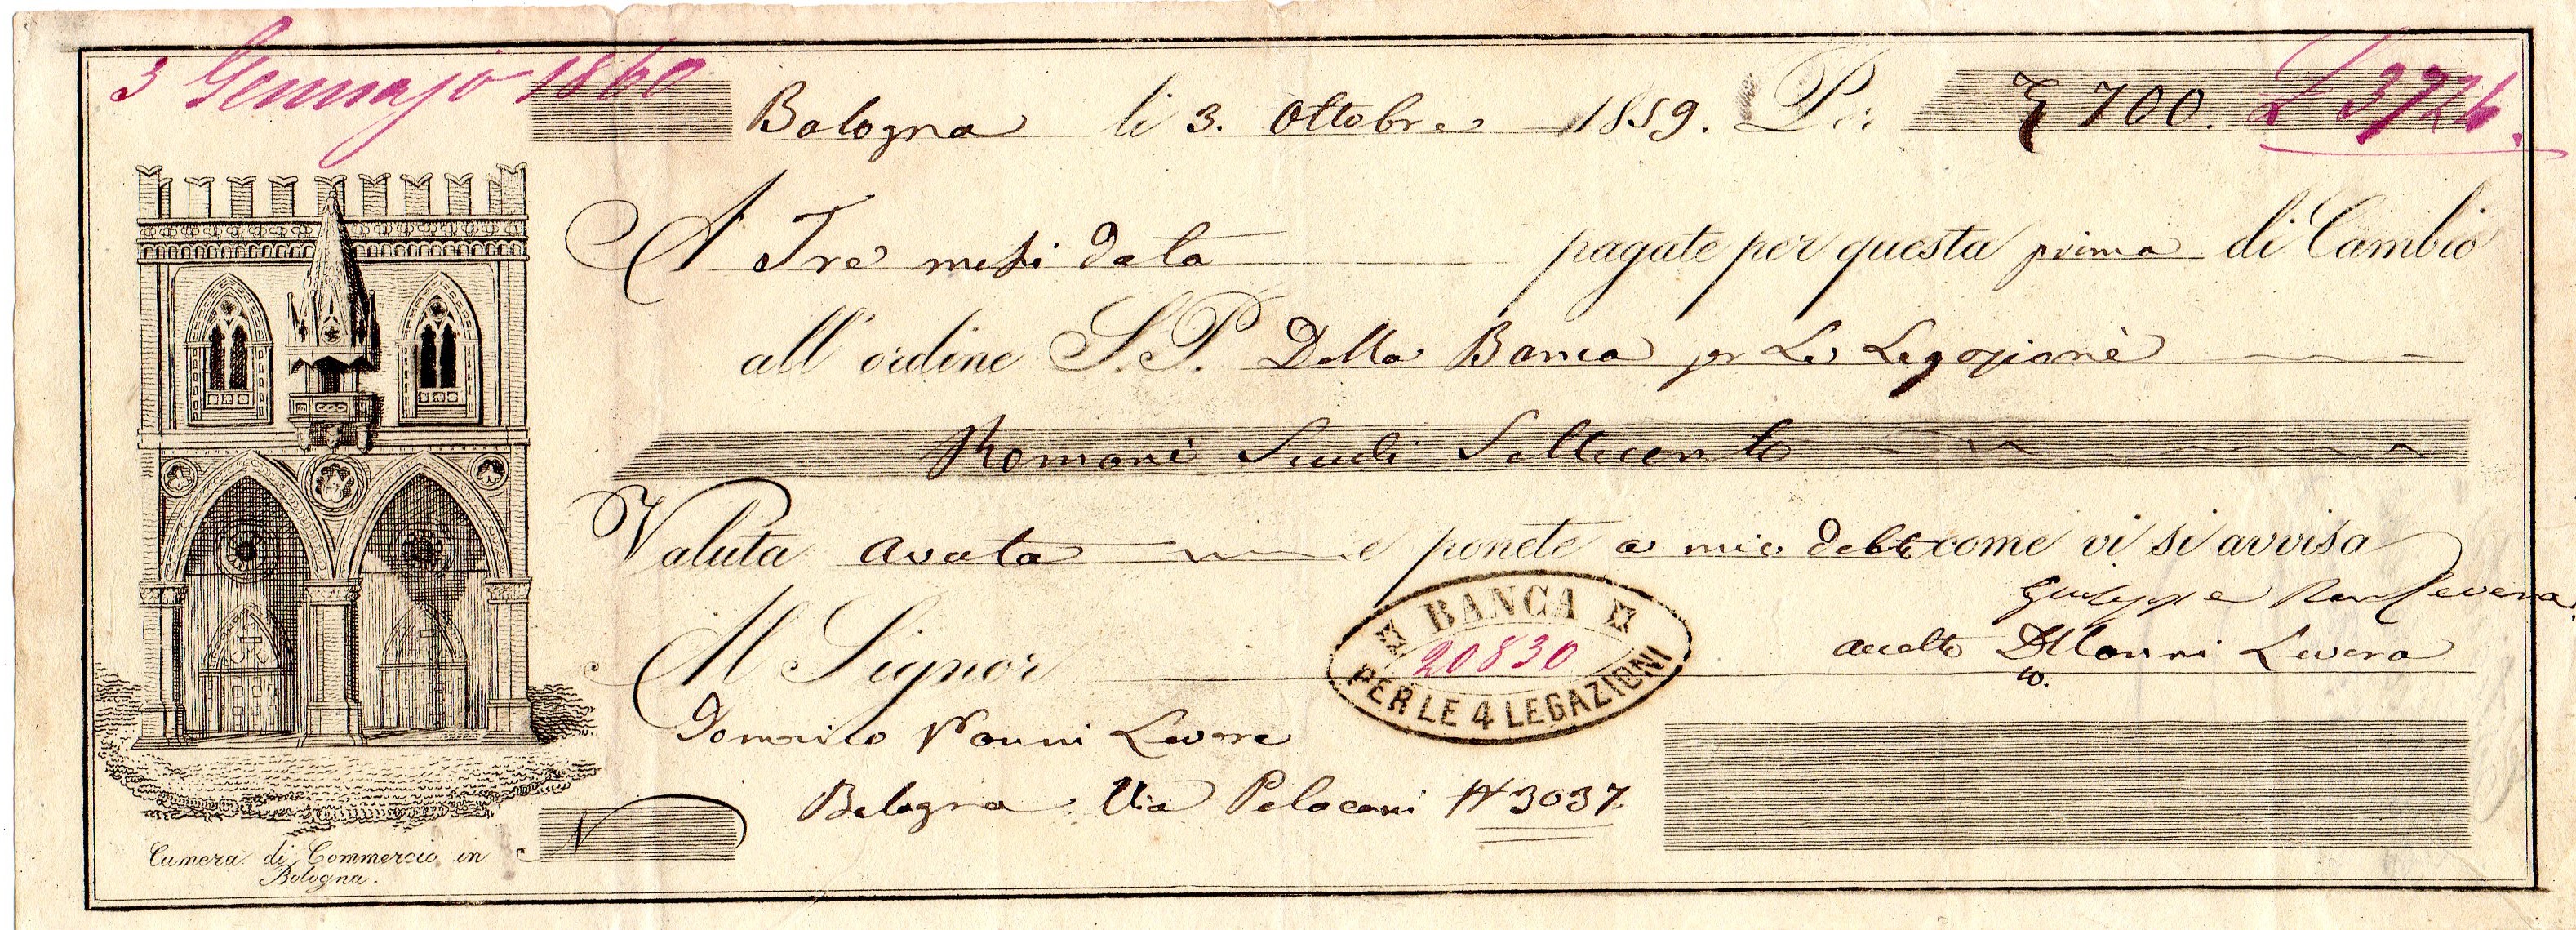 3 Gennajo 1860
Bologna li 3. Ottobre 1859. Per 700. £ 3724.
A Tre mesi data pagate per questa prima di Cambio
all' ordine S.P. Della Banca pr Le Legazioni
Romani Scudi Settecento
Valuta avuta e ponete a mio debito come vi si avvisa
Giuseppe
Al Signor accetto DNanni Levera
Domenico Nanni Levera
Bologna Via Pelacani N 3037
BANCA
20830
PER LE 4 LEGAZIONI
N
Camera di Commercio in
Bologna.